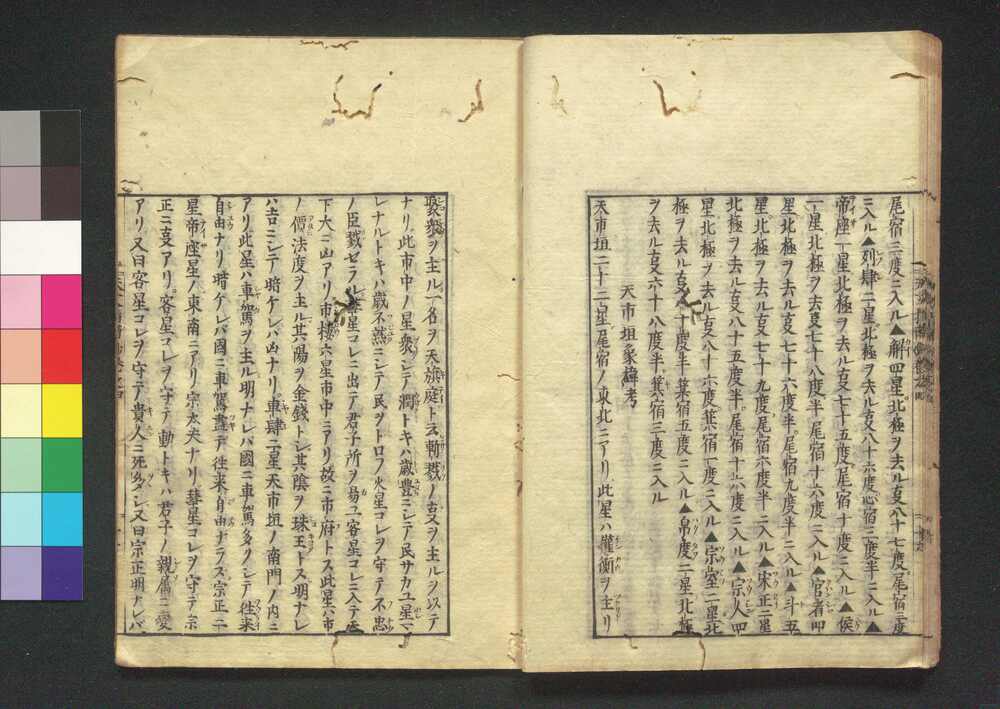 尾宿三度ニ入ル▲斛四星北極ヲ去ル支八十七度尾宿三度
ニ入ル▲列肆二星北極ヲ去ル支八十六度心宿三度半ニ入ル▲
帝座一星北極ヲ去ル支七十五度尾宿十度ニ入ル▲侯
一星北極ヲ去支七十八度半尾宿十六度ニ入ル▲宦者四
星北極ヲ去ル支七十六度半尾宿九度半ニ入ル▲斗五
星北極ヲ去ル支七十九度尾宿六度半ニ入ル▲宋正二星
北極ヲ去ル支八十五度半尾宿十六度ニ入ル▲宗人四
星北極ヲ去ル支八十六度箕宿一度ニ入ル▲宗星二星北
極ヲ去ル支八十度半箕宿五度ニ入ル▲帛度二星北極
ヲ去ル支六十八度半箕宿三度ニ入ル
天市垣象緯考
天市垣二十二星尾宿ノ東北ニアリ此星ハ權衡ヲ主リ
聚衆ヲ主ル一名ヲ天旗庭トス斬戮ノ支ヲ主ルヲ以テ
ナリ此市中ノ星衆シテ潤トキハ歳豊ニシテ民サカユ星マ
レナルトキハ歳不熟ニシテ民ヲトロフ火星コレヲ守テ不忠
ノ臣戮セラル彗星コレニ出テ君子所ヲ易ユ客星コレニ入テ天
下大ニ凶アリ市楼六星市中ニアリ故ニ市府トス此星ハ市
ノ價法度ヲ主ル其陽ヲ金錢トシ其陰ヲ珠玉トス明ナレ
ハ吉ニシテ暗ケレバ凶ナリ車肆二星天市垣ノ南門ノ内ニ
アリ此星ハ車駕ヲ主ル明ナレバ國ニ車駕多クシテ往来
自由ナリ暗ケレバ國ニ車駕盡テ往来自由ナラス宗正二
星帝座星ノ東南ニアリ宗太夫ナリ彗星コレヲ守テ宗
正ニ支アリ客星コレヲ守テ動トキハ君子ノ親属ニ変
アリ又曰客星コレヲ守テ貴人ニ死多シ又曰宗正明ナレバ